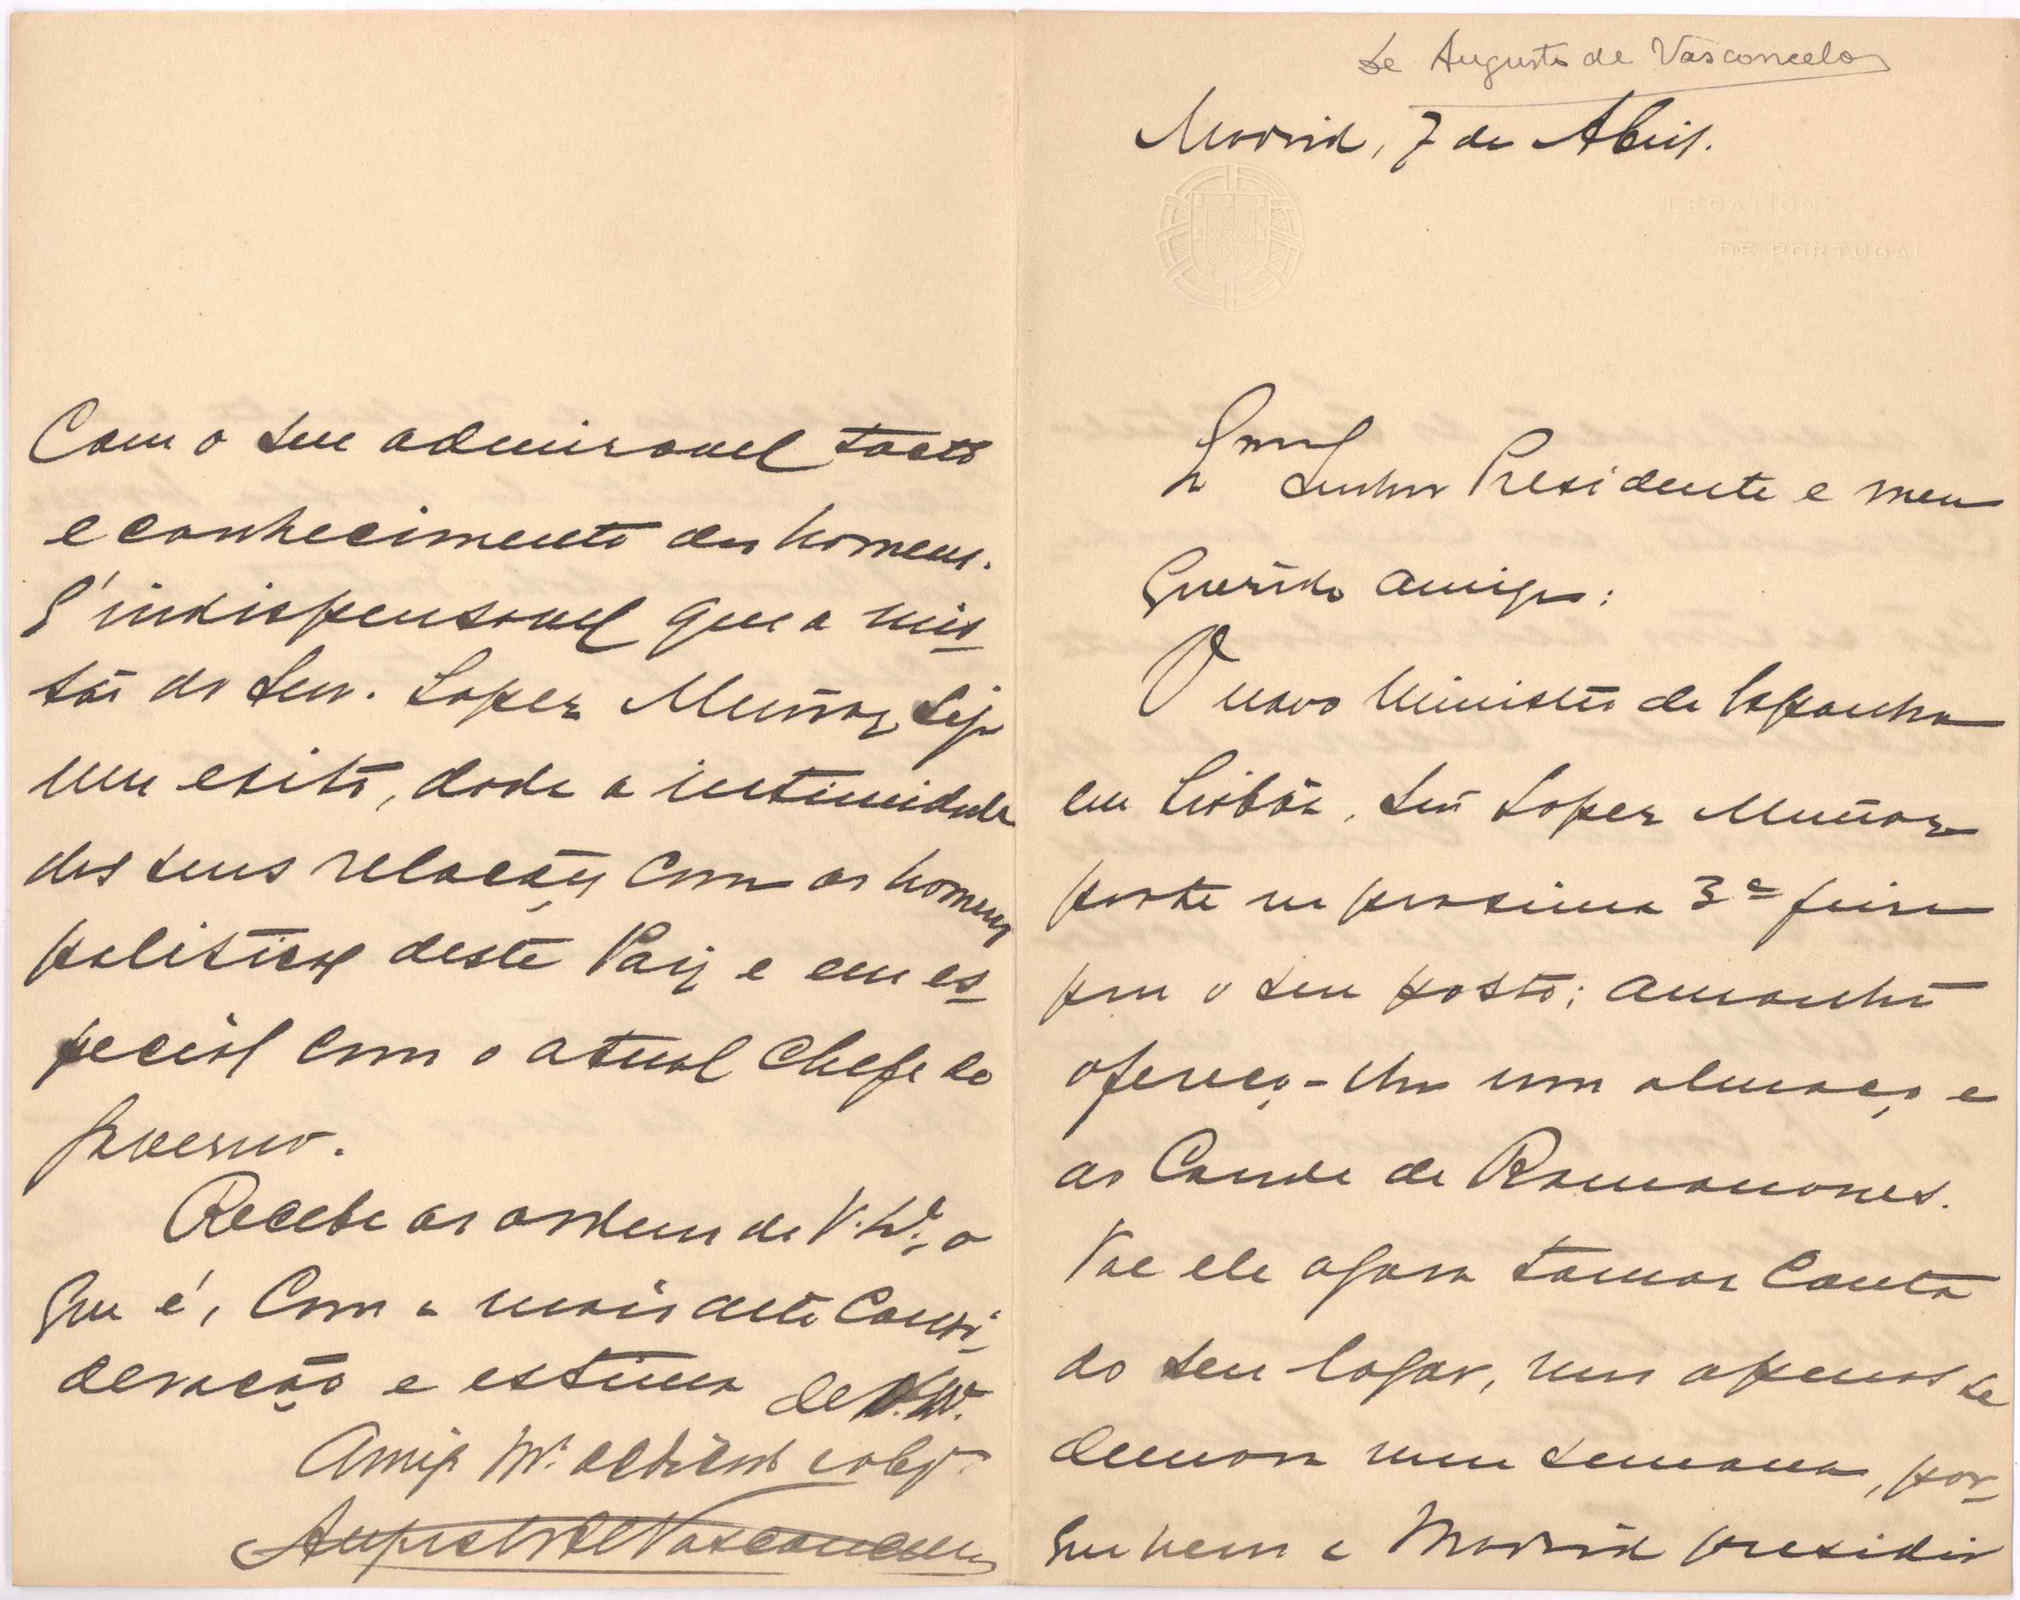 de Augusto de Vasconcelos
Madrid, 7 de Abril.
LEGATION
DE PORTUGAL
Exmo Senhor Presidente e meu
Querido amigo:
O novo Ministro de Espanha
em Lisbôa, Snr Lopez Muñoz
parte na proxima 3ª feira
para o seu posto; amanhã
ofereço-lhe um almoço e
ao Conde de Romanones.
Vae ele agora tomar conta
do seu logar, mas apenas se
demora uma semana, por-
que vem a Madrid presidir
Com o seu admiravel tacto
e conhecimento dos homens.
E' indispensavel que a mis-
são do Snr. Lopez Muñoz seja
um exito, dada a intimidade
das suas relações com os homens
politicos deste Paiz e em es-
pecial com o atual chefe do
governo.
Recebe as ordens de V. Exª, o
que é, com a mais alta consi-
deração e estima de V. Exª.
Amigo Mto dedicado e obgdo
Augusto de Vasconcelos